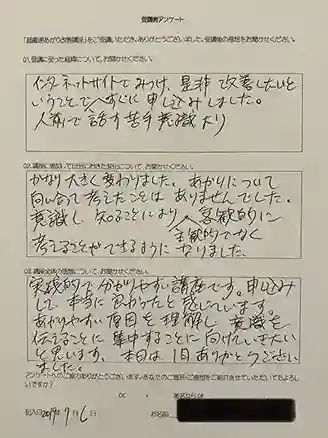 受講者アンケート
「超最速あがり改善講座」をご受講いただき、ありがとうございました。受講後の感想をお聞かせください。
Q1.受講に至った経緯について、お聞かせください。
インターネットサイトでみつけ、是非 改善したいと
いうことで、すぐに申し込みしました。
人前で話す苦手意識あり
Q2.講座に参加して自分におきた変化について、お聞かせください。
かなり大きく変わりました。あがりについて
向い合って考えたことはありませんでした。
意識し、知ることにより、客観的に
主観的でなく
考えることができるようになりました。
Q3.講座全体の感想について、お聞かせください。
実践的で分かりやすい講座です。申込み
して、本当に良かったと感じています。
あがりやすい原因を理解し、意識を
伝えることに集中することに向けていきたい
と思います。本日は1日ありがとうござい
ました。
アンケートへのご協力ありがとうございます。あなたのご意見・ご感想をご紹介させていただいてもよろし
いですか?
OK ・ 匿名ならOK
記入日 2019年 9月 6日 お名前